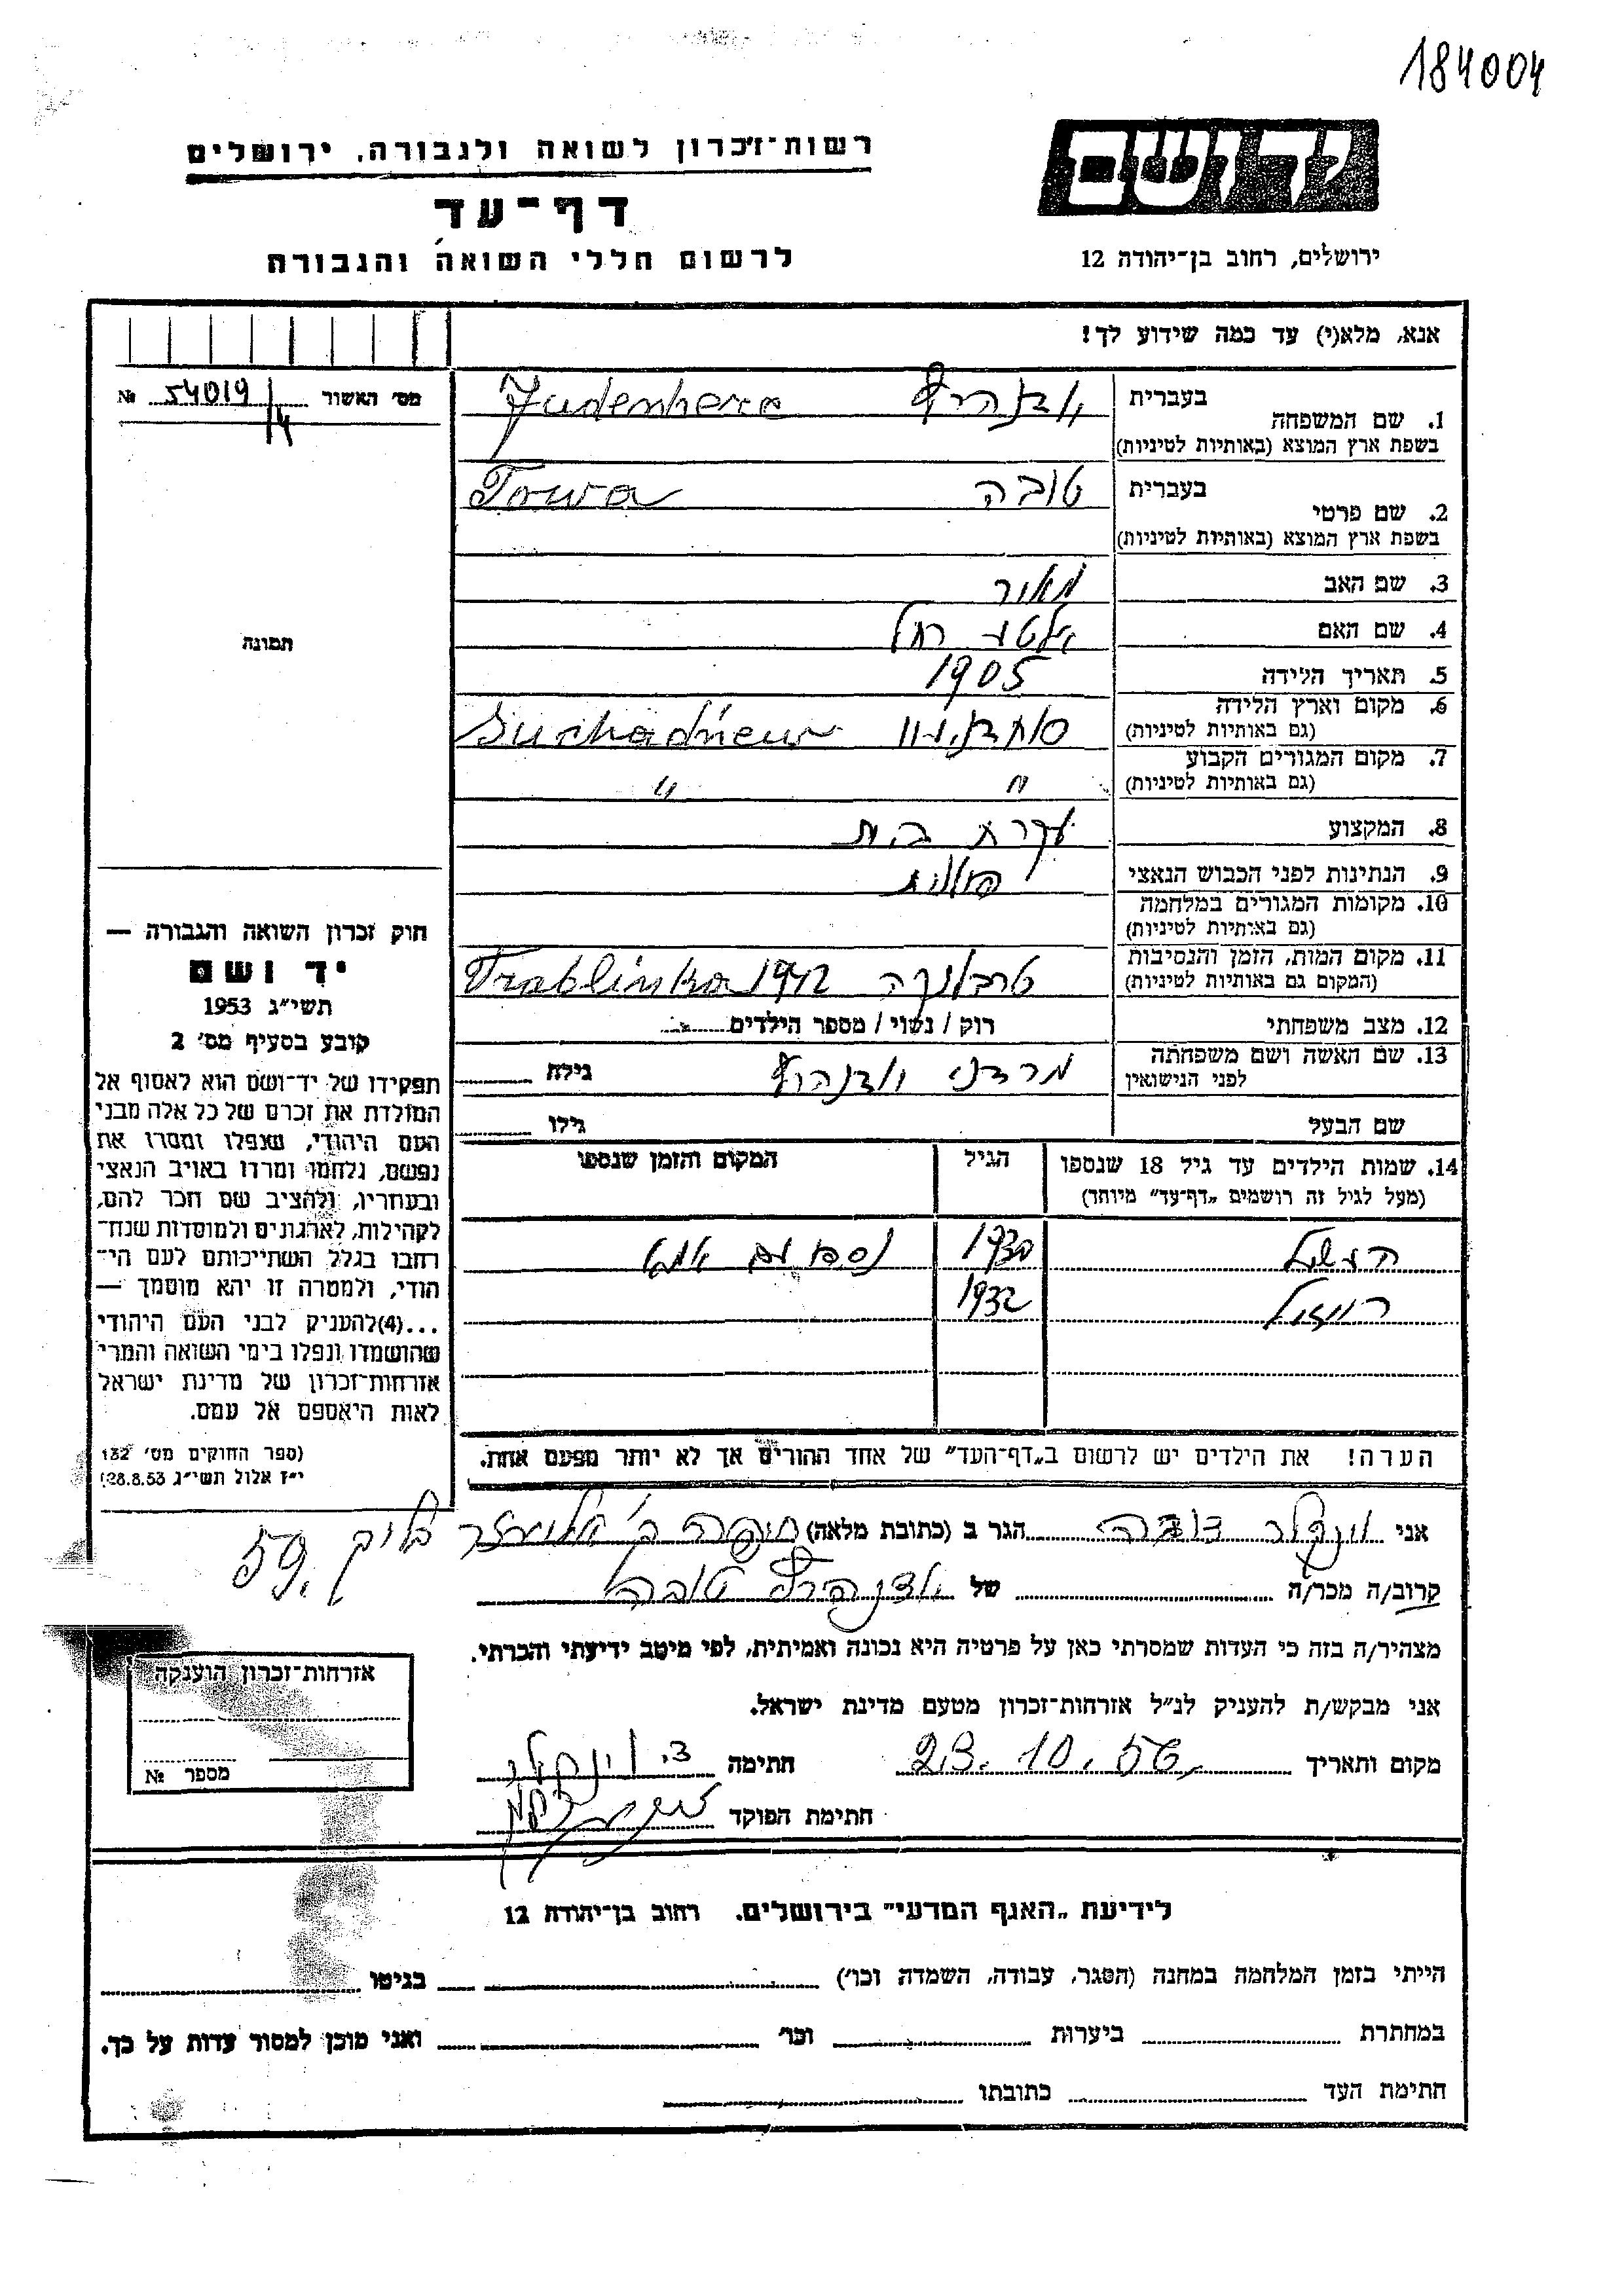 184004
רשות־זכרון לשואה ולגבורה, ירושלים
דף־עד
לרשום חללי השואה והגבורה
ידושם
ירושלים, רחוב בן־יהודה 12
אנא, מלא(י) עד כמה שידוע לך!
מס׳ האשור 54019/4 №
תמונה
חוק זכרון השואה והגבורה —
יד ושם
תשי״ג 1953
קובע בסעיף מס׳ 2
תפקידו של יד־ושם הוא לאסוף אל
המולדת את זכרם של כל אלה מבני
העם היהודי, שנפלו ומסרו את
נפשם, נלחמו ומרדו באויב הנאצי
ובעוזריו, ולהציב שם וזכר להם,
לקהילות, לארגונים ולמוסדות שנח־
רבו בגלל השתייכותם לעם הי־
הודי, ולמטרה זו יהא מוסמך —
...(4)להעניק לבני העם היהודי
שהושמדו ונפלו בימי השואה והמרי
אזרחות־זכרון של מדינת ישראל
לאות היאספם אל עמם.
(ספר החוקים מס׳ 132
י״ז אלול תשי״ג 28.8.53)
בעברית
1. שם המשפחה
בשפת ארץ המוצא (באותיות לטיניות)
יודנהרץ Judenherc
בעברית
2. שם פרטי
בשפת ארץ המוצא (באותיות לטיניות)
טובה Towa
3. שם האב מאיר
4. שם האם אלטע רחל
5. תאריך הלידה 1905
6. מקום וארץ הלידה
(גם באותיות לטיניות)
Suchadniew
7. מקום המגורים הקבוע
(גם באותיות לטיניות)
" "
8. המקצוע עקרת בית
9. הנתינות לפני הכבוש הנאצי פולנית
10. מקומות המגורים במלחמה
(גם באותיות לטיניות)
11. מקום המות, הזמן והנסיבות
(המקום גם באותיות לטיניות)
טרבלינקה Trablinka 1942
12. מצב משפחתי רוק / נשוי / מספר הילדים
13. שם האשה ושם משפחתה
לפני הנישואין
מרדכי יודנהרץ גילה
שם הבעל גילו
14. שמות הילדים עד גיל 18 שנספו
(מעל לגיל זה רושמים „דף־עד״ מיוחד)
הגיל
המקום והזמן שנספו
1930 נספו עם אמא
רויזל 1932
הערה! את הילדים יש לרשום ב„דף־העד״ של אחד ההורים אך לא יותר מפעם אחת.
אני וינקלר הגר ב (כתובת מלאה) חיפה 59
קרוב/ה מכר/ה של יודנהרץ טובה
מצהיר/ה בזה כי העדות שמסרתי כאן על פרטיה היא נכונה ואמיתית, לפי מיטב ידיעתי והכרתי.
אני מבקש/ת להעניק לנ״ל אזרחות־זכרון מטעם מדינת ישראל.
מקום ותאריך 23.10.56 חתימה צ. וינקלר
חתימת הפוקד
אזרחות־זכרון הוענקה
מספר №
לידיעת „האגף המדעי״ בירושלים. רחוב בן־יהודה 12
הייתי בזמן המלחמה במחנה (הסגר, עבודה, השמדה וכו׳) בגיטו
במחתרת ביערות וכו׳ ואני מוכן למסור עדות על כך.
חתימת העד כתובתו